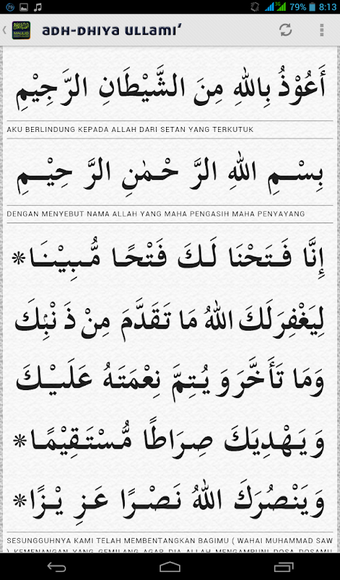 79% 8:13
ADH-DHIYA ULLAMI'
أَعُوْذُ بِاللهِ مِنَ الشَّيْطَانِ الرَّجِيْمِ
AKU BERLINDUNG KEPADA ALLAH DARI SETAN YANG TERKUTUK
بِسْــمِ اللهِ الرَّ حْـمٰنِ الرَّ حِيْــمِ
DENGAN MENYEBUT NAMA ALLAH YANG MAHA PENGASIH MAHA PENYAYANG
إِنَّا فَـتَحْنَا لَـكَ فَتْحًـا مُّـبِيْـنَـا*
لِيَغْفِرَ لَكَ اللهُ مَا تَقَدَّمَ مِنْ ذَ نْبِكَ
وَمَا تَأَخَّرَ وَ يُـتِمَّ نِعْمَتَهُ عَلَـيْــكَ
وَ يَـهْـدِيَكَ صِـرَاطًا مُّـسْـتَـقِيْمًـا*
وَ يَنْصُرَكَ اللهُ نَـصْـرًا عَـزِ يْـزًا*
SESUNGGUHNYA KAMI TELAH MEMBENTANGKAN BAGIMU ( WAHAI MUHAMMAD SAW
) KEMENANGAN YANG GEMILANG AGAR DIA ALLAH MENGAMPUNI DOSA-DOSAMU